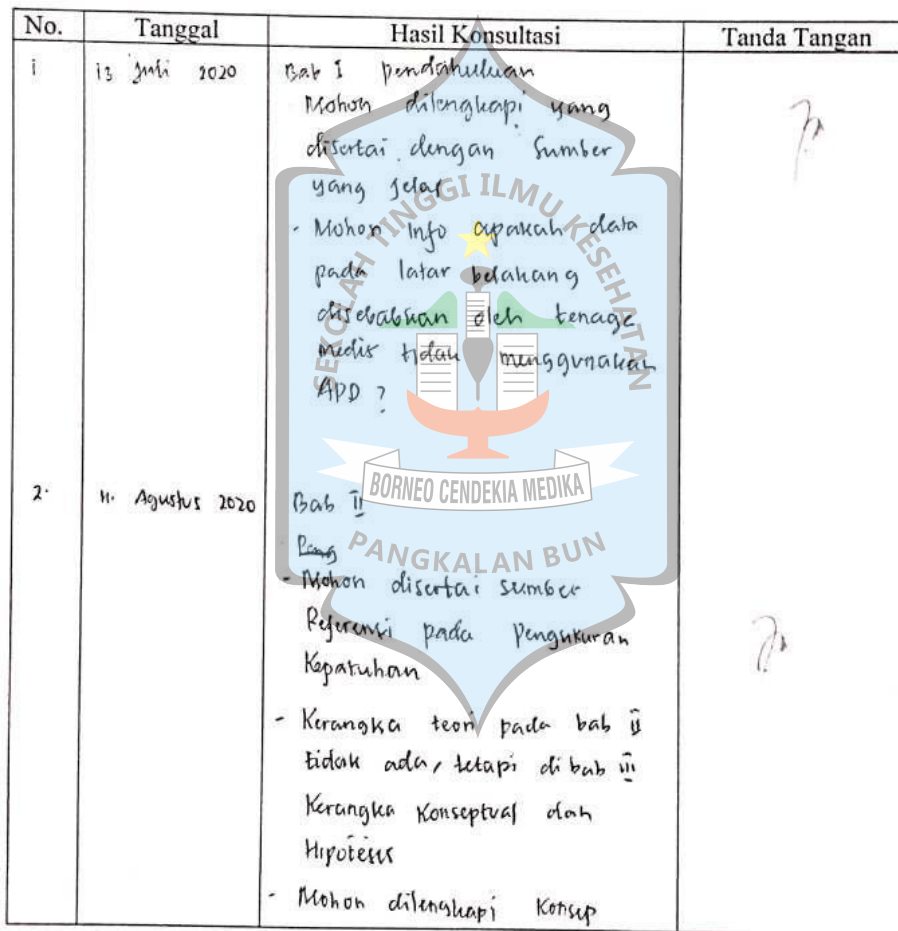 No. Tanggal Hasil Konsultasi Tanda Tangan
1 13 Juli 2020 Bab I pendahuluan
Mohon dilengkapi yang
disertai dengan Sumber
yang jelas
- Mohon Info apakah data
pada latar belakang
disebabkan oleh tenaga
medis tidak menggunakan
APD ?
2. 11. Agustus 2020 Bab II
- Mohon disertai sumber
Referensi pada Pengukuran
Kepatuhan
- Kerangka teori pada bab II
tidak ada, tetapi di bab III
Kerangka Konseptual dan
Hipotesis
- Mohon dilengkapi Konsep
SEKOLAH TINGGI ILMU KESEHATAN
BORNEO CENDEKIA MEDIKA
PANGKALAN BUN